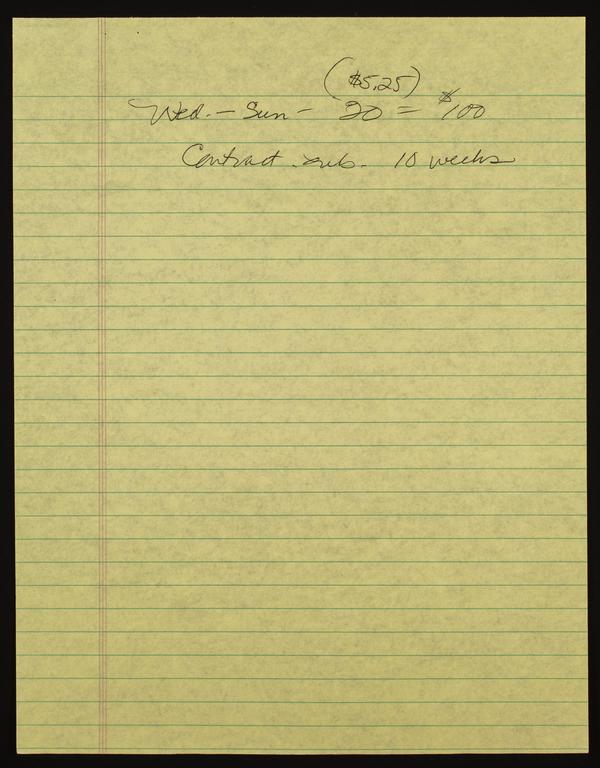 ($5.25)
Wed. - Sun - 20 = $100
Contract. sub. 10 weeks